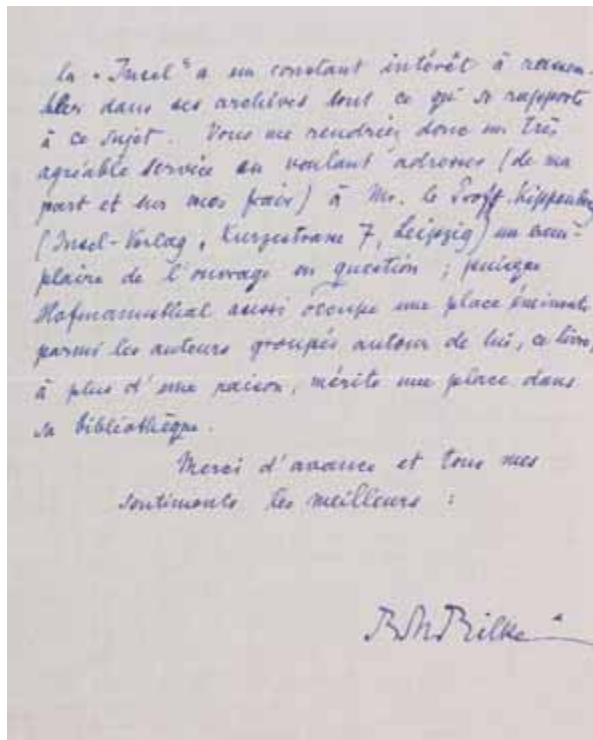 la "Insel" a un constant intérêt à rassem-
bler dans ses archives tout ce qui se rapporte
à ce sujet. Vous me rendriez donc un très
agréable service en voulant adresser (de ma
part et sur mes frais) à Mr. le Proff. Kippenberg
(Insel-Verlag, Kurzestrasse 7, Leipzig) un exem-
plaire de l'ouvrage en question ; puisque
Hofmannsthal aussi occupe une place éminente
parmi les auteurs groupés autour de lui, ce livre,
à plus d'une raison, mérite une place dans
sa bibliothèque.
Merci d'avance et tous mes
sentiments les meilleurs :
RMRilke